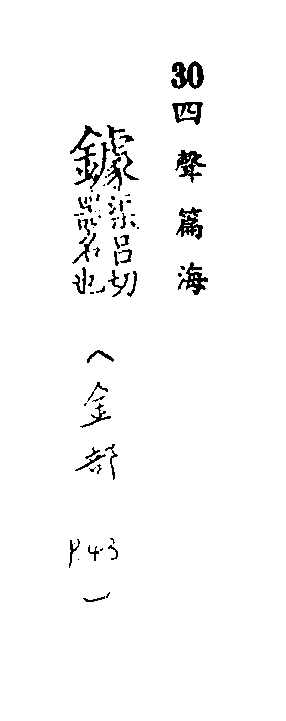 30四聲篇海
鐻渠呂切器名也
(金部 P.43)